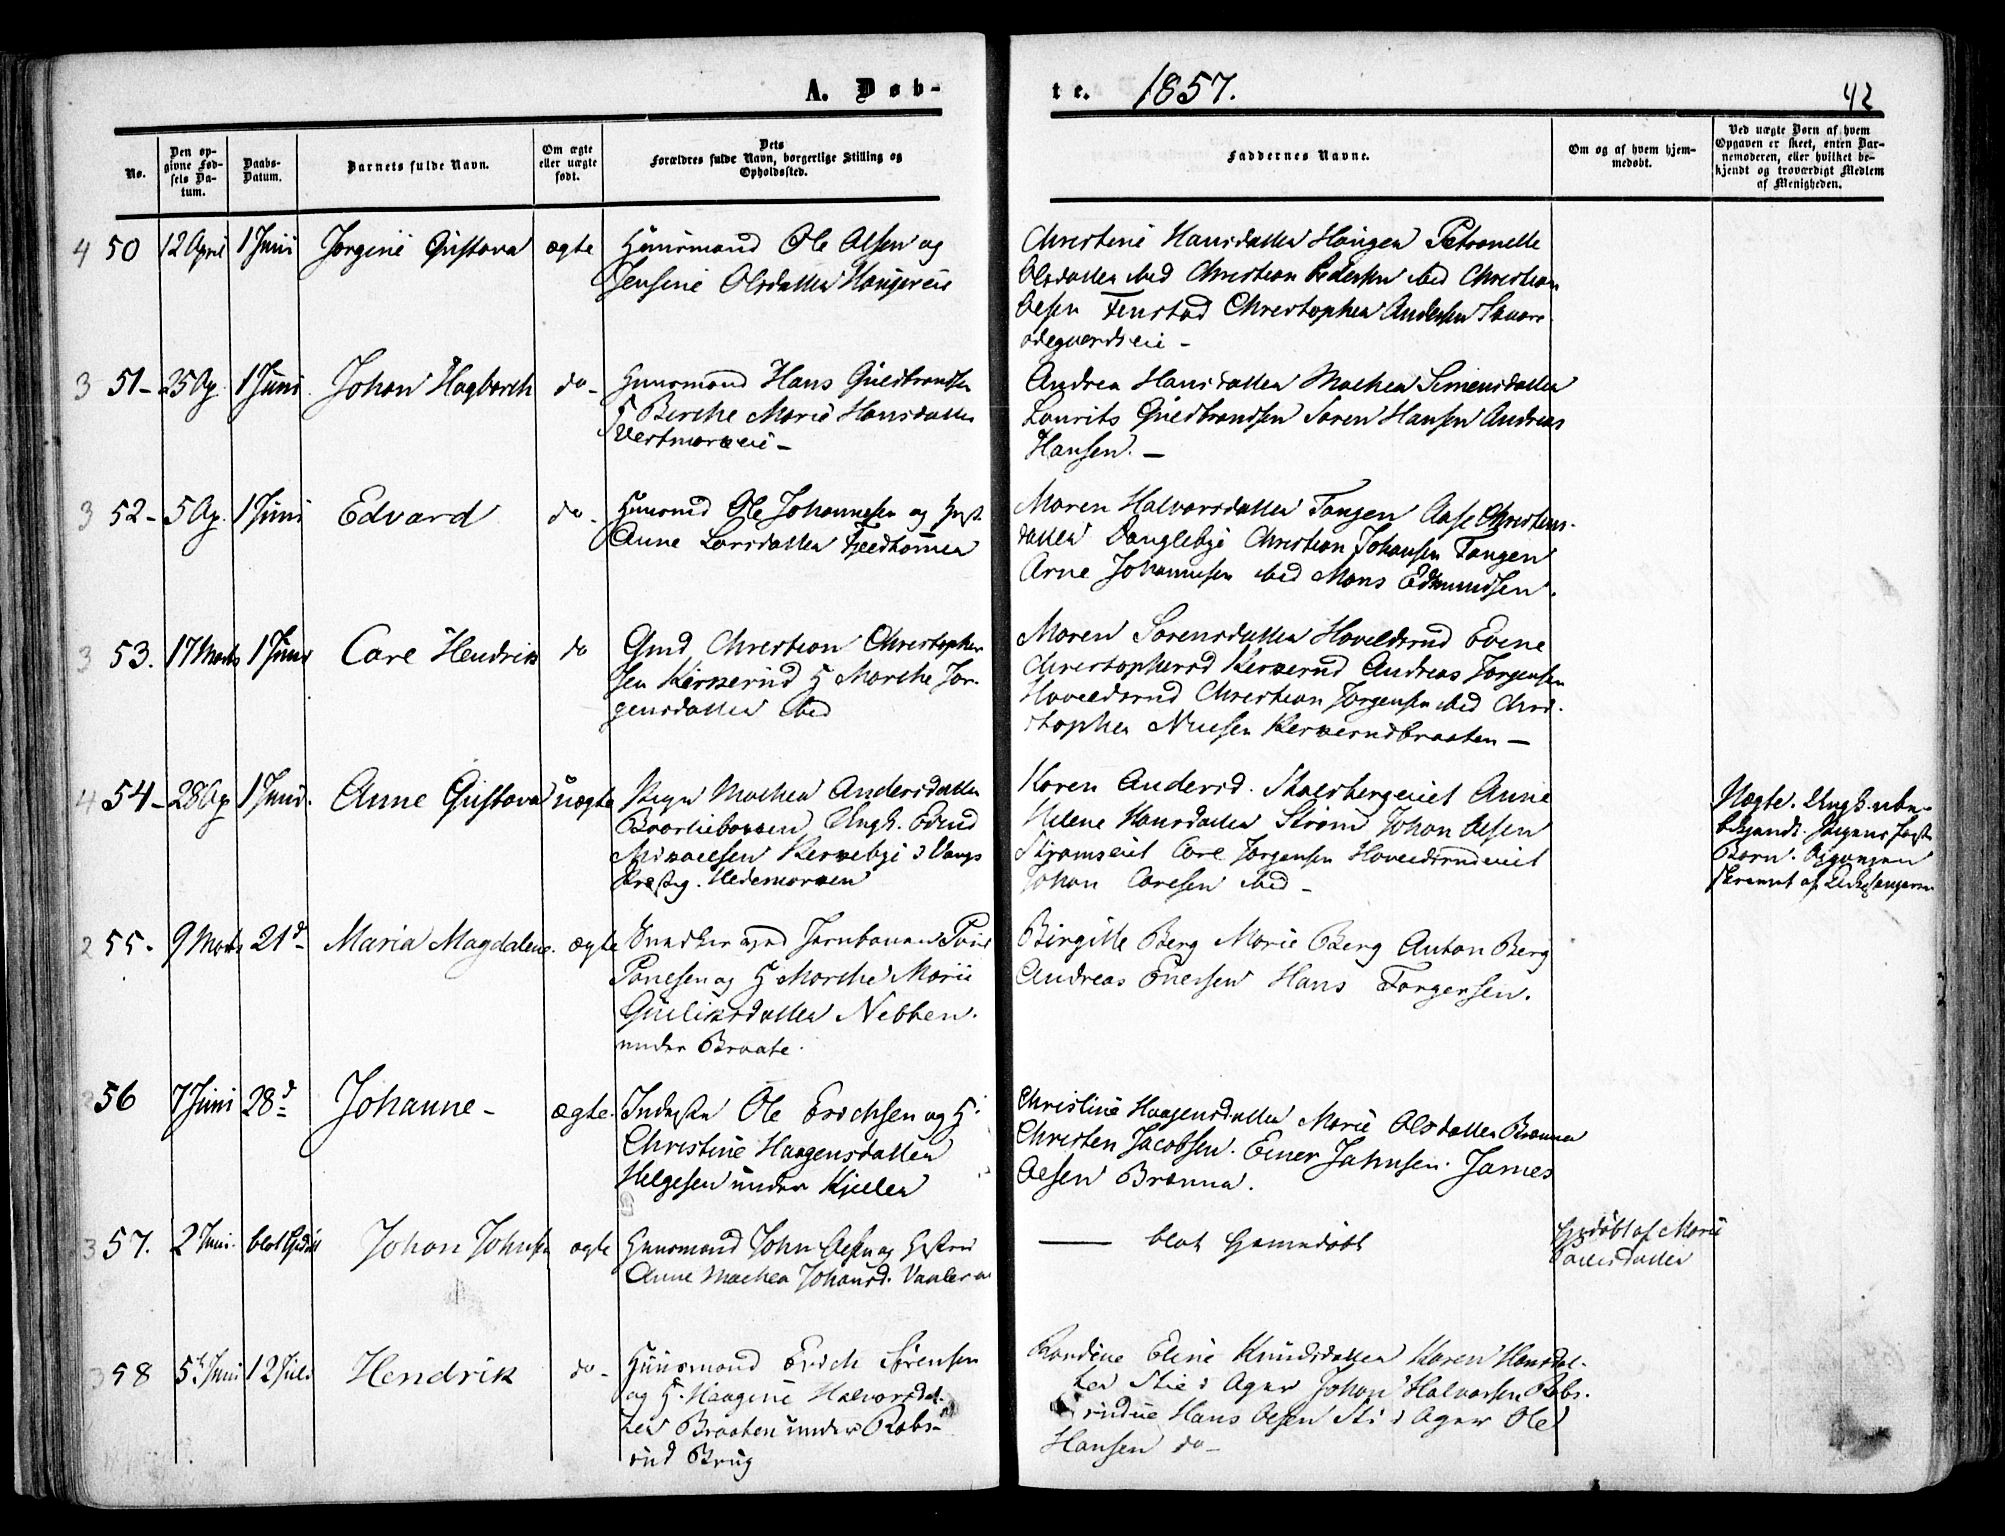 A. Døb-
te. 1857.
42
No.
Den opgivne Fødsels Datum.
Daabs-Datum.
Barnets fulde Navn.
Om ægte eller uægte født.
Dets Forældres fulde Navn, borgerlige Stilling og Opholdssted.
Faddernes Navne.
Om og af hvem hjemmedøbt.
Ved uægte Børn af hvem Opgaven er skeet, enten Barnemoderen, eller hvilket bekjendt og troværdigt Medlem af Menigheden.
4 50 12 April 1 Juni Jørgine Gustava ægte Huusmand Ole Olsen og
Jensine Olsdatter Haugereie
Christine Hansdatter Haugen Petronelle
Olsdatter ibid Christian Pedersen ibid Christian
Olsen Finstad Christopher Andersen
ødegaardseie -
3 51- 25 Ap. 1 Juni Johan Hagbarth do- Huusmand Hans Guldbrandsen
H Berthe Marie Hansdatter
Vestmoreneie -
Andrea Hansdatter Mathea Simensdatter
Laurits Guldbrandsen Søren Hansen Andreas
Hansen. -
3 52- 5 Ap. 1 Juni Edvard do- Huusmd Ole Johannesen og Hust.
Anne Larsdatter
Maren Halvorsdatter Tangen Aase Christens-
datter Danglebye Christian Johansen Tangen
Arne Johannesen ibid Mons Edmundsen.
3 53. 17 Marts 1 Juni Carl Hendrik do Gmd Christian Christopher
sen Kirkerud H Marthe Jør-
gensdatter ibid
Maren Sørensdatter Hovelsrud Eline
Christophersd Kirkerud Andreas Jørgensen
Hovelsrud Christian Jørgensen ibid Chri-
stopher Nielsen Kirkerudbraaten -
4 54- 28 Ap 1 Juni. Anne Gustava uægte Pigen Mathea Andersdatter
Ungk.
Mikaelsen Kirkebye i Vangs
Præstg. Hedemarken
Karen Andersd. Skulsbergeiet Anne
Helene Hansdatter Strøm Johan Olsen
Strømseiet Carl Jørgensen Hovelsrudeiet
Johan Carlsen ibid -
Uægte. Ungk. ube-
Børn. Opgaven
2 55. 9 Marts 21d Maria Magdalene. ægte Snedker ved Jernbanen
og H Marthe Marie
Gulliksdatter Nebben
under Braate.
Birgitte Berg Marie Berg Anton Berg
Andreas Hans Torgersen.
56 7 Juni 28d Johanne- ægte. Inderst Ole Erichsen og H.
Christine Haagensdatter
Helgesen under Kjeller
Christine Haagensdatter Marie Olsdatter Brænna
Christen Jacobsen. Einer Jahnsen. James
Olsen Brænna.
3 57. 2 Juni. blot Johan Johns ægte Huusmand John Olsen og Hustru
Anne Mathea Johansd. Vaaler
— blot hjemmedøbt
Hjdøbt af Marie
Pallesdatter
3 58 5te Juni 12 Juli Hendrik do- Huusmand Erich Sørensen
og H. Haagine Halvorsdat-
ter Braaten under Robs-
rud Brug
Randine Eline Knudsdatter Karen Hansdat-
ter Stie i Ager Johan Halvorsen Robs-
rudeie Hans Olsen Sti i Ager Ole
Hansen do-